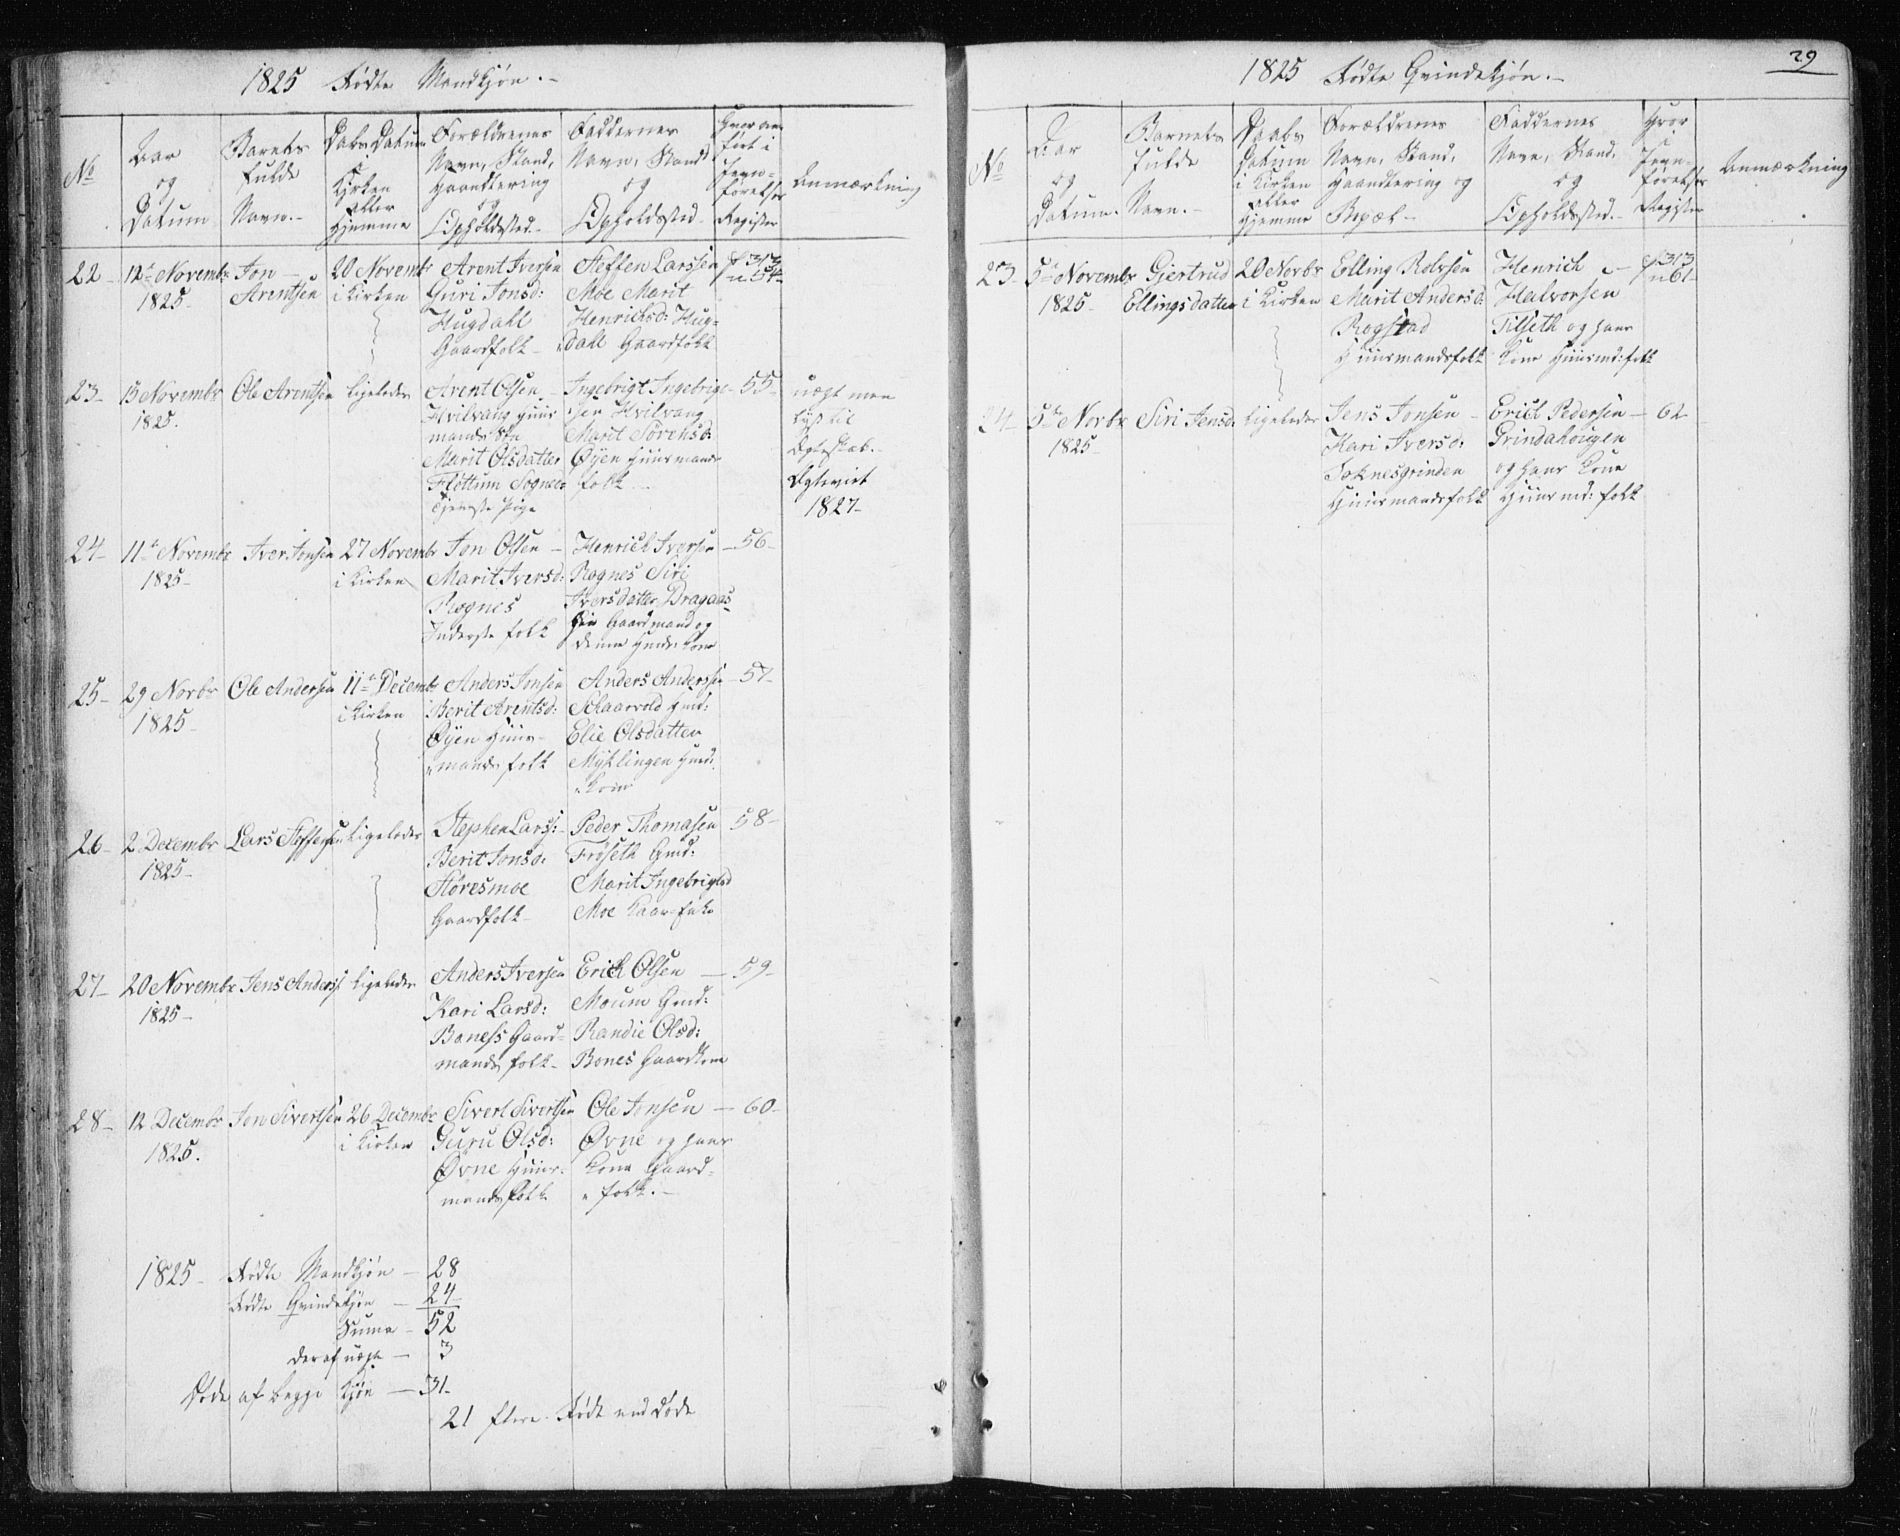 1825 Fødte Mandkjøn.-
No
Aar
og
Datum
Barnets
fulde
Navn.-
Daabs Datum
i
Kirken
eller
Hjemme
Forældrenes
Navn, Stand,
Haandtering
og
Opholdssted-
Faddernes
Navn, Stand
og
Opholdssted-
Hvor an-
ført i
Jevn-
førelses
Register
Anmærkning
22-
12te Novembr
1825-
Jon -
Arentsen
20 Novembr
i Kirken
Arent Iversen
Guri Jonsd:
Hugdahl
Gaardfolk -
Steffen Larssen
Moe Marit
Henrichsd: Hug-
dahl Gaardfolk
f 313
n 54-
23-
13 Novembr
1825.
Ole Arentsen
Ligeledes
Arent Olsen -
Hvilvang Huus
mands Søn
Marit Olsdatter
Flöttum Sogned
Tjeneste Pige
Ingebrigt Ingebrigt-
sen Hvilvang
Marit Sörensd:
Öyen Huusmands
folk -
55-
uægt men
lyst til
Ægteskab.-
Ægteviet
1827-
24-
11te Novembr
1825-
Iver Jonsen
27 Novembr
i Kirken
Jon Olsen -
Marit Iversd:
Rognes
Inderste folk
Henrich Iversen
Rognes Siri
Iversdatter Dragaas
hiin Gaardmand og
denne Huusm: Kone
-56-
25-
29 Novbr
1825-
Ole Andersen
11te Decembr
i Kirken
Anders Jonsen
Berit Arentsd:
Öyen Huus-
mands folk
Anders Anderssen
Schaarvold
Elie Olsdatter
Myklingen
Kone
-57-
26-
2 Decembr
1825-
Lars Steffensen
Ligeledes
Stephen Larss:
Berit Jonsd:
Störesmoe
Gaardfolk-
Peder Thomasen
Fröseth Gmd:
Marit Ingebrigtsd
Moe
58-
27-
20 Novembr
1825-
Jens Anderss
Ligeledes
Anders Iversen
Kari Larsd:
Boness Gaard-
mands folk-
Erich Olsen
Moum Gmd:
Randie Olsd:
Bones Gaardkone
- 59-
28-
12 Decembr
1825.
Jon Sivertsen
26 Decembr
i Kirken
Sivert Sivertsen
Guru Olsd:
Övne Huus-
mandsfolk
Ole Jonsen
Övne og hans
Kone Gaard-
folk.-
- 60-
1825- Fødte Mandkjön - 28
Fødte Qvindekjön - 24
Suma - 52
deraf uægte - 3
Döde af begge Kjön - 31-
21 flere Födt end Döde
1825 Fødte Qvindekjøn.-
29
No
Aar
og
Datum.
Barnets
fulde
Navn.-
Daabs
Datum
i Kirken
eller
Hjemme
Forældrenes
Navn, Stand,
Haandtering og
Bopæl-
Faddernes
Navn, Stand,
og
Opholdssted-
Hvor
i
Jevn-
førelses
Register
Anmærkning
23-
5te Novembr
1825-
Gjertrud
Ellingsdatter
20 Novbr
i Kirken
Elling Rolvsen
Marit Andersd:
Rogstad
Huusmandsfolk
Henrich -
Halvorsen
Tilseth og hans
Kone Huusmd: folk
f 313
n 61-
24-
5te Novbr
1825-
Siri Jensd:
Ligeledes
Jens Jonsen -
Kari Iversd:
Soknesgrinden
Huusmandsfolk
Erich Pedersen
Grindahougen
og hans Kone
Huusmd: folk
- 62